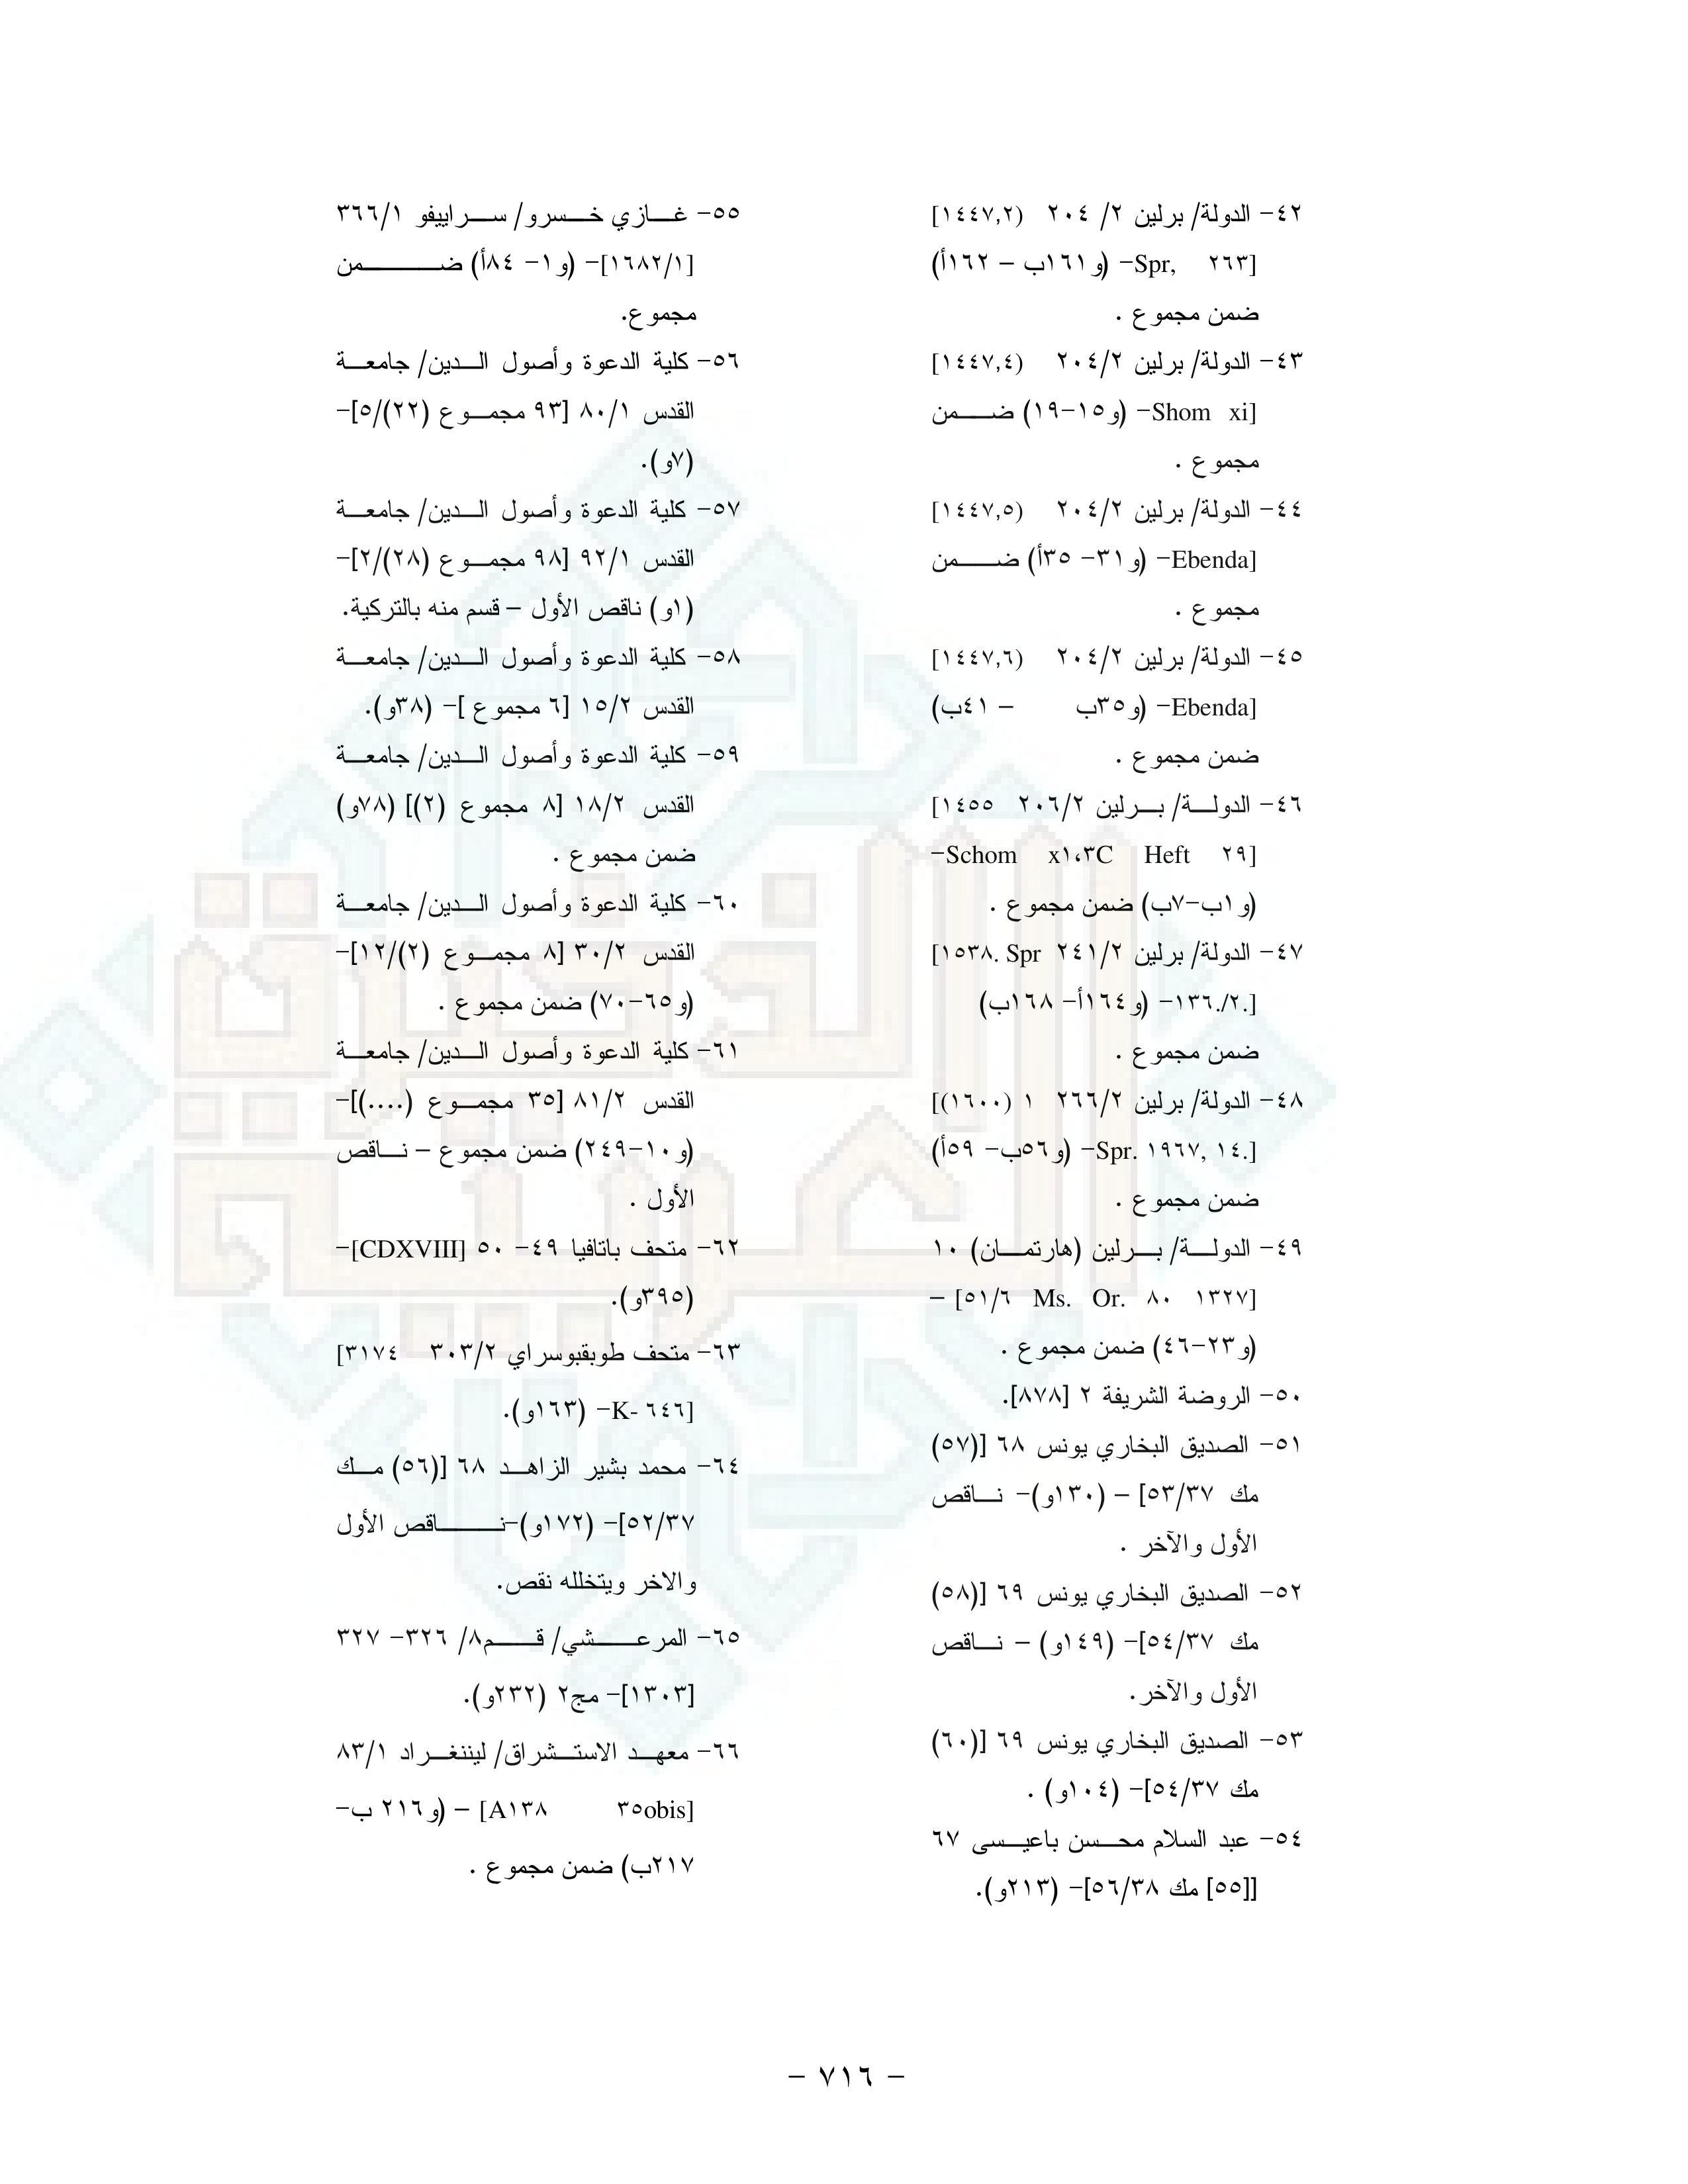 ٤٢- الدولة/ برلين ٢/ ٢٠٤ (١٤٤٧,٢]
[٢٦٣ Spr,- (و١٦١ب – ١٦٢أ)
ضمن مجموع .
٤٣- الدولة/ برلين ٢٠٤/٢ (١٤٤٧,٤]
[Shom xi- (و١٥-١٩) ضمن
مجموع .
٤٤- الدولة/ برلين ٢٠٤/٢ (١٤٤٧,٥]
[Ebenda- (و٣١- ٣٥أ) ضمن
مجموع .
٤٥- الدولة/ برلين ٢٠٤/٢ (١٤٤٧,٦]
[Ebenda- (و٣٥ب – ٤١ب)
ضمن مجموع .
٤٦- الدولة/ برلين ٢٠٦/٢ ١٤٥٥]
[٢٩ Schom x١،٣C Heft-
(و١ب-٧ب) ضمن مجموع .
٤٧- الدولة/ برلين ٢٤١/٢ ١٥٣٨. Spr]
[.٢/.١٣٦- (و١٦٤أ- ١٦٨ب)
ضمن مجموع .
٤٨- الدولة/ برلين ٢٦٦/٢ ١ (١٦٠٠)]
[.Spr. ١٩٦٧, ١٤- (و٥٦ب- ٥٩أ)
ضمن مجموع .
٤٩- الدولة/ برلين (هارتمان) ١٠
[١٣٢٧ ٨٠ Ms. Or. ٥١/٦] –
(و٢٣-٤٦) ضمن مجموع .
٥٠- الروضة الشريفة ٢ [٨٧٨].
٥١- الصديق البخاري يونس ٦٨ [(٥٧)
مك ٥٣/٣٧] – (١٣٠و)- ناقص
الأول والآخر .
٥٢- الصديق البخاري يونس ٦٩ [(٥٨)
مك ٥٤/٣٧]- (١٤٩و) – ناقص
الأول والآخر.
٥٣- الصديق البخاري يونس ٦٩ [(٦٠)
مك ٥٤/٣٧]- (١٠٤و) .
٥٤- عبد السلام محسن باعيسى ٦٧
[[٥٥] مك ٥٦/٣٨]- (٢١٣و).
٥٥- غازي خسرو/ سراييفو ٣٦٦/١
[١٦٨٢/١]- (و١- ٨٤أ) ضمن
مجموع.
٥٦- كلية الدعوة وأصول الدين/ جامعة
القدس ٨٠/١ [٩٣ مجموع (٢٢)/٥]-
(٧و).
٥٧- كلية الدعوة وأصول الدين/ جامعة
القدس ٩٢/١ [٩٨ مجموع (٢٨)/٢]-
(١و) ناقص الأول – قسم منه بالتركية.
٥٨- كلية الدعوة وأصول الدين/ جامعة
القدس ١٥/٢ [٦ مجموع ]- (٣٨و).
٥٩- كلية الدعوة وأصول الدين/ جامعة
القدس ١٨/٢ [٨ مجموع (٢)] (٧٨و)
ضمن مجموع .
٦٠- كلية الدعوة وأصول الدين/ جامعة
القدس ٣٠/٢ [٨ مجموع (٢)/١٢]-
(و٦٥-٧٠) ضمن مجموع .
٦١- كلية الدعوة وأصول الدين/ جامعة
القدس ٨١/٢ [٣٥ مجموع (....)]-
(و١٠-٢٤٩) ضمن مجموع – ناقص
الأول .
٦٢- متحف باتافيا ٤٩- ٥٠ [CDXVIII]-
(٣٩٥و).
٦٣- متحف طوبقبوسراي ٣٠٣/٢ ٣١٧٤]
[٦٤٦ -K- (١٦٣و).
٦٤- محمد بشير الزاهد ٦٨ [(٥٦) مك
٥٢/٣٧]- (١٧٢و)-ناقص الأول
والاخر ويتخلله نقص.
٦٥- المرعشي/ قم٨/ ٣٢٦- ٣٢٧
[١٣٠٣]- مج٢ (٢٣٢و).
٦٦- معهد الاستشراق/ ليننغراد ٨٣/١
[٣٥obis A١٣٨] – (و٢١٦ ب-
٢١٧ب) ضمن مجموع .
الذخيرة
العربية
- ٧١٦ -